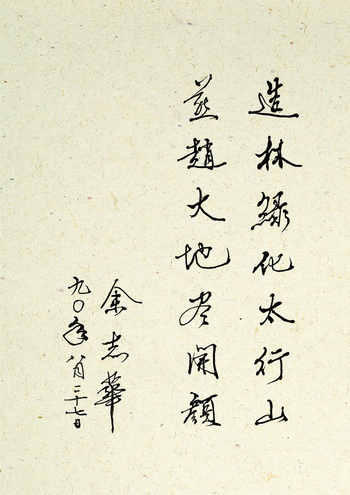 造林绿化太行山
燕趙大地尽開顔
余志華
九〇年八月二十七日